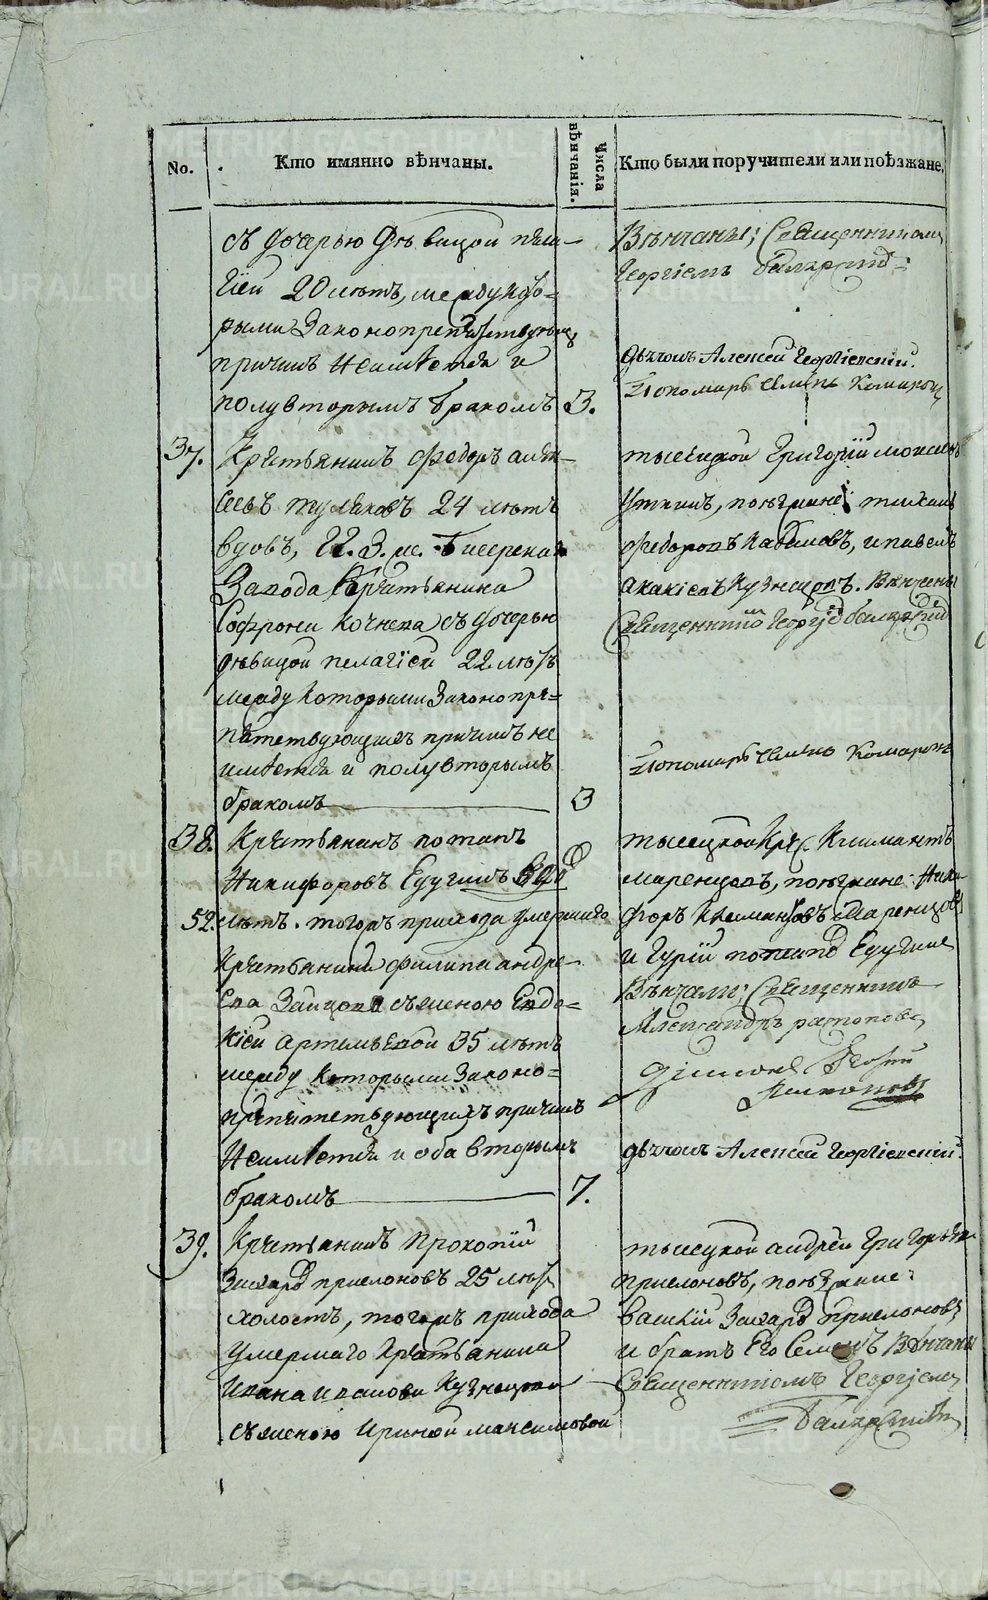 No.
Кто имянно вѣнчаны.
Числа вѣнчанія.
Кто были поручители или поѣзжане.
съ дочерью дѣвицой пела-
гіей 20 лѣтъ, между кото-
рыми законопрепятствующ
причинъ неимѣется и
полувторымъ бракомъ 3.
Вѣнчаны; Священникомъ
Георгіемъ
дьячокъ Алексей Георгіевскій.
Пономарь Комаровъ
37. Крестьянинъ Федоръ алек-
сеевъ туляковъ 24 лѣтъ
вдовъ, Бисерскаго
Завода Крестьянина
Софрона кочнева съ дочерью
дѣвицой пелагіей 22 лѣтъ
между которыми законопре-
пятствующихъ причинъ не
имѣется и полувторымъ
бракомъ 3
тысецкой Григорій моисеевъ
Уткинъ, поѣзжане: тихонъ
Федоровъ Кабановъ, и павелъ
акакіевъ Кузнецовъ. Венчаны
Священникомъ Георгіемъ
Пономарь Комаровъ
38. Крестьянинъ потапъ
Никифоровъ Едугинъ вдов
52 лѣтъ. тогожъ прихода умершаго
Крестьянина филипа андре-
ева Зайцова съ женою Евдо-
кіей артемьевой 35 лѣтъ
между которыми законо-
препятствующихъ причинъ
неимѣется и оба вторымъ
бракомъ 7.
тысецкой Кре. Климантъ
маренцовъ, поѣзжане: Ники-
форъ Климантовъ Маренцовъ
и Гурій потаповъ Едугине
Вѣнчали; Священникъ
Александръ
дьячокъ Алексей Георгіевскій.
39. Крестьянинъ Прокопій
Захаровъ приелоновъ 25 лѣтъ
холостъ, тогожъ прихода
умершаго Крестьянина
ивана иванова Кузнецова
съ женою Ириной максимовой
тысецкой андрей Григорьевъ
приелоновъ, поѣзжане:
Захаровъ приелоновъ
и братъ Его Семенъ Вѣнчаны
Священникомъ Георгіемъ